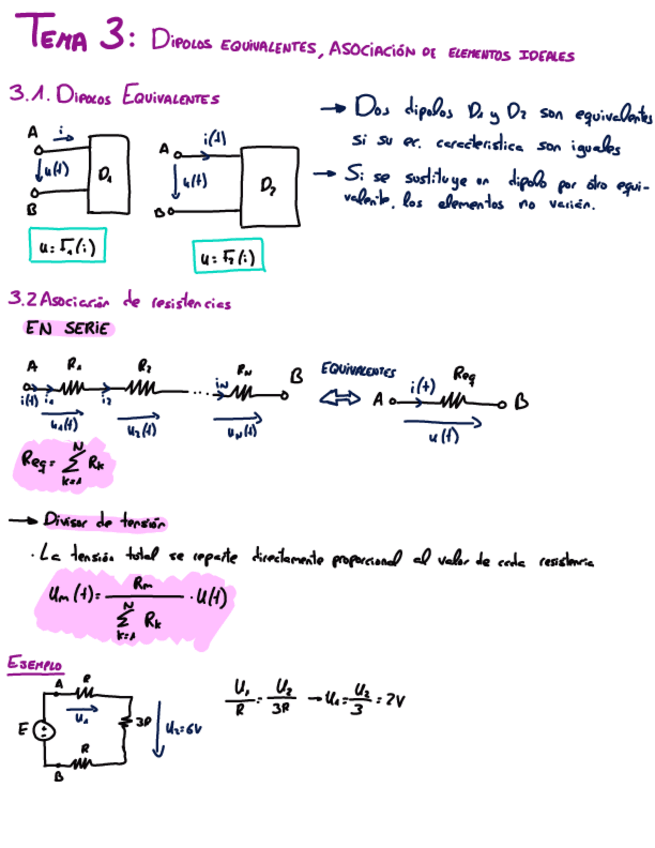 TEMA 3: DIPOLOS EQUIVALENTES, ASOCIACIÓN DE ELEMENTOS IDEALES
3.1. DIPOLOS EQUIVALENTES
A i
u(t) D₁
B
u = F₁(i)
A i(t)
u(t) D₂
B
u = F₂(i)
→ Dos dipolos D₁ y D₂ son equivalentes
si su ec. característica son iguales
→ Si se sustituye un dipolo por otro equi-
valente, los elementos no varían.
3.2 Asociación de resistencias
EN SERIE
A R₁ R₂ R_N B
i(t) i₁ i₂ i_N
u₁(t) u₂(t) u_N(t)
EQUIVALENTES
⇔
A i(t) Req B
u(t)
Req = N Σ k=1 Rk
→ Divisor de tensión
· La tensión total se reparte directamente proporcional al valor de cada resistencia
Um(t) = Rm / N Σ k=1 Rk · U(t)
EJEMPLO
A R
U₁
E 3R U₂=6V
R
B
U₁/R = U₂/3R → U₁ = U₂/3 = 2V